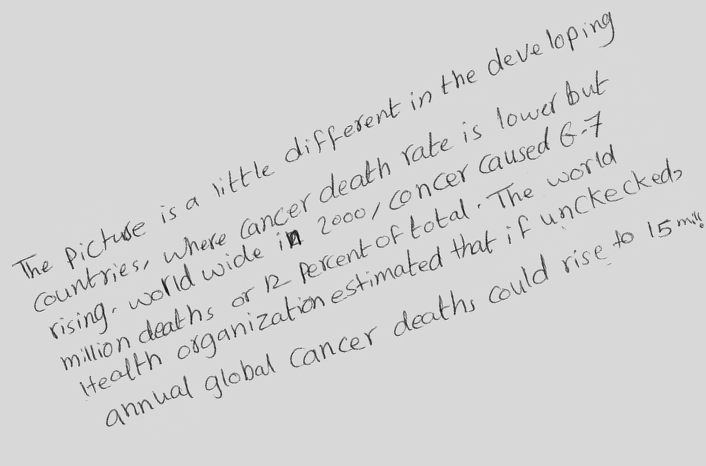 The picture is a little different in the developing
countries, where cancer death rate is lower but
rising. world wide in 2000, concer caused 6.7
million deaths or 12 percent of total. The world
Health organization estimated that if unckecked,
annual global cancer deaths could rise to 15 mill